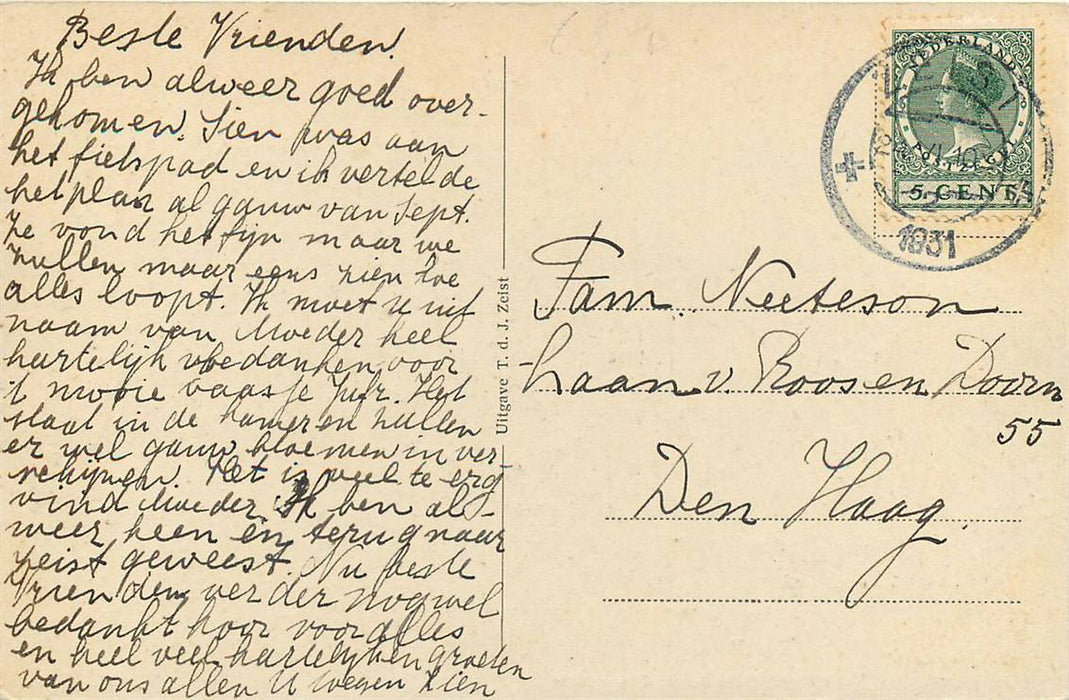 Beste Vrienden.
Ik ben alweer goed over-
gekomen. Sien was aan
het fietspad en ik vertelde
het plan al gauw van Sept.
Ze vond het fijn maar we
zullen maar eens zien hoe
alles loopt. Ik moet u uit
naam van Moeder heel
hartelijk bedanken voor
't mooie vaasje Jufr. Het
staat in de kamer en zullen
er wel gauw bloemen in ver
schijnen. Het is veel te erg
vind Moeder. Ik ben al-
weer heen en terug naar
Zeist geweest. Nu beste
Vrienden verder nog wel
bedankt hoor voor alles
en heel veel hartelijken groeten
van ons allen U wegen Sien
Uitgave T. d. J. Zeist
NEDERLAND
5 CENT
ZEIST
1931
Fam. Neeteson
Laan v. Roos en Doorn
55
Den Haag.